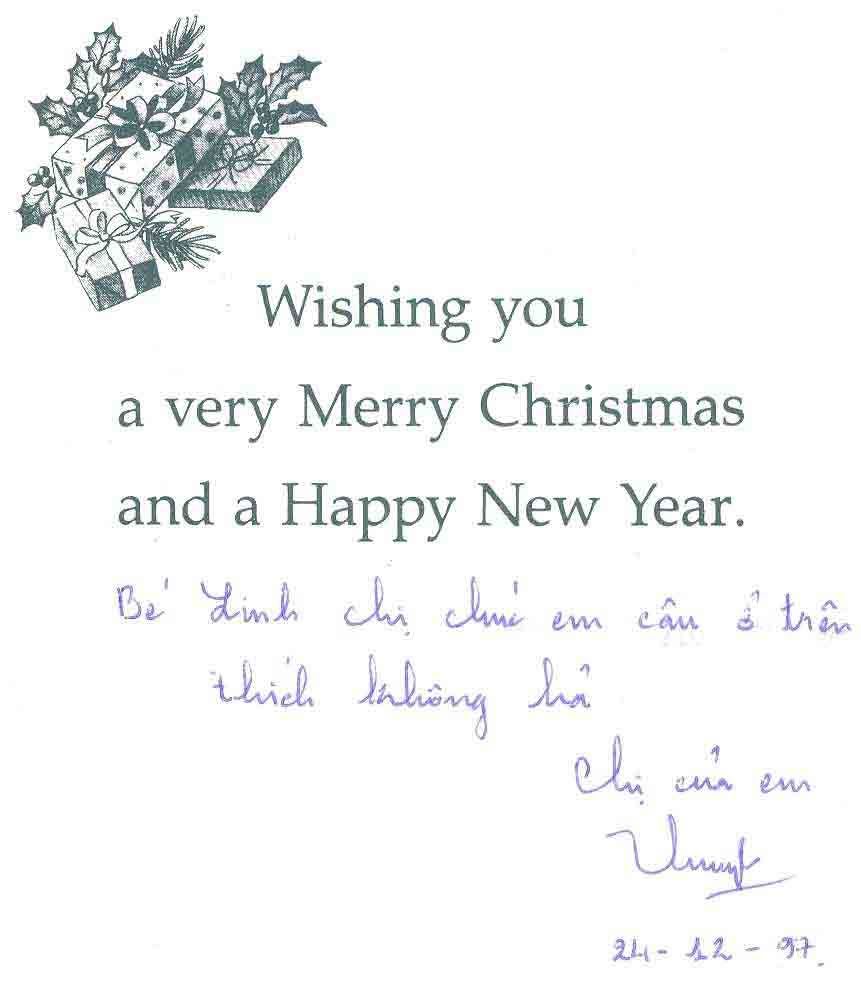 Wishing you
a very Merry Christmas
and a Happy New Year.
Bé Linh chị chúc em câu ở trên
thích không hả
Chị của em
24-12-97.